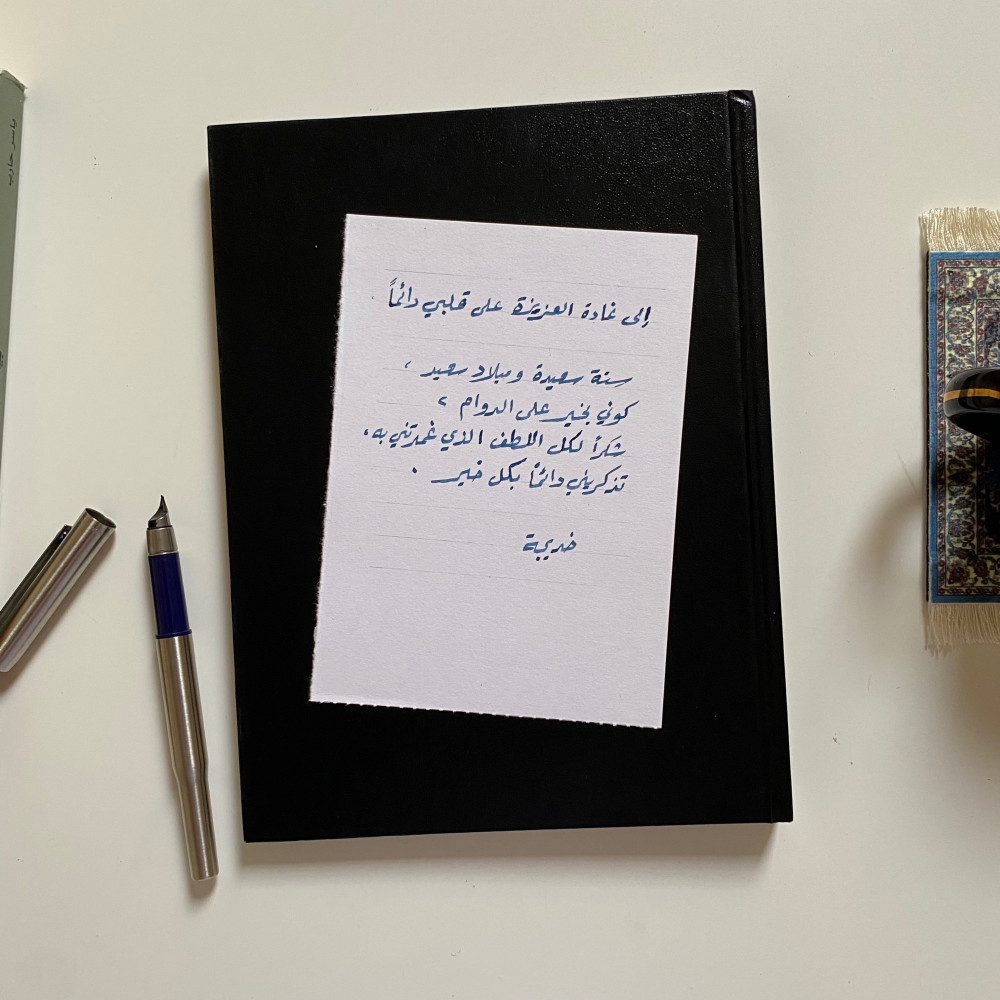 إلى غادة العزيزة على قلبي دائماً
سنة سعيدة وميلاد سعيد ،
كوني بخير على الدوام ،
شكراً لكل اللطف الذي غمرتني به ،
تذكريني دائماً بكل خير .
خديجة
ياسر حارب